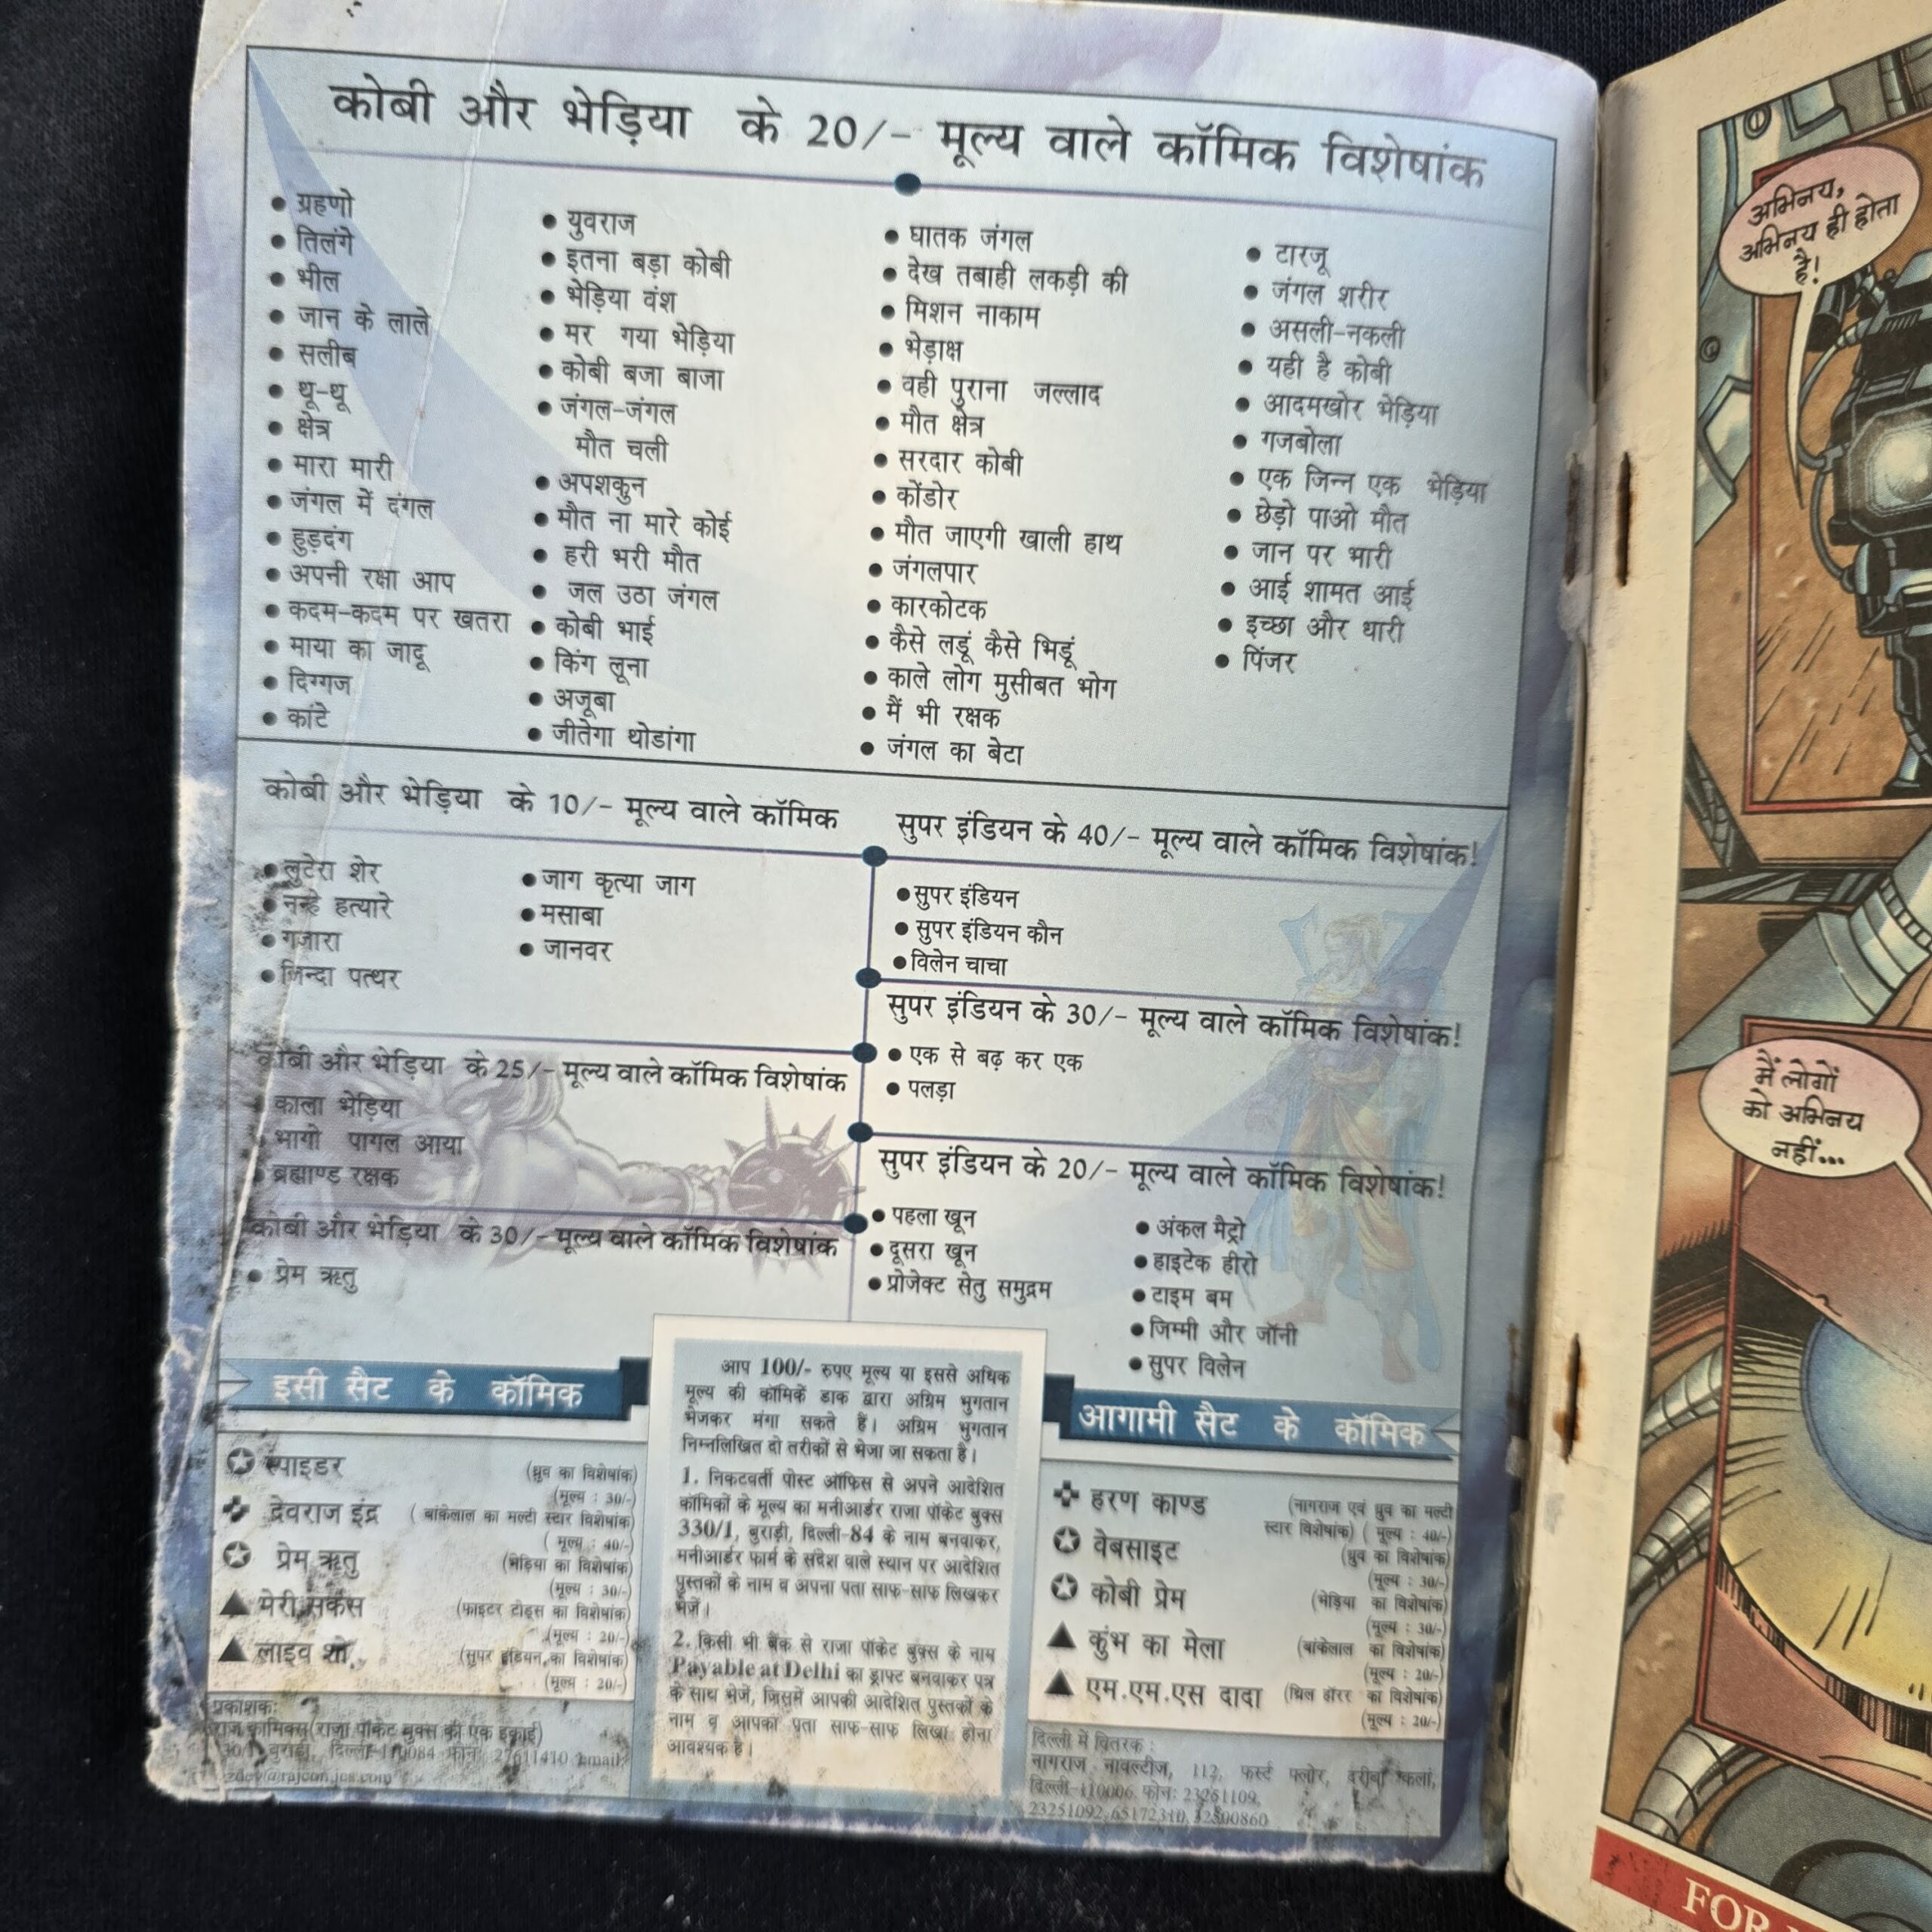 कोबी और भेड़िया के 20/- मूल्य वाले कॉमिक विशेषांक
• ग्रहणो
• तिलंगे
• भील
• जान के लाले
• सलीब
• थू-थू
• क्षेत्र
• मारा मारी
• जंगल में दंगल
• हुड़दंग
• अपनी रक्षा आप
• कदम-कदम पर खतरा
• माया का जादू
• दिग्गज
• कांटे
• युवराज
• इतना बड़ा कोबी
• भेड़िया वंश
• मर गया भेड़िया
• कोबी बजा बाजा
• जंगल-जंगल
मौत चली
• अपशकुन
• मौत ना मारे कोई
• हरी भरी मौत
• जल उठा जंगल
• कोबी भाई
• किंग लूना
• अजूबा
• जीतेगा थोडांगा
• घातक जंगल
• देख तबाही लकड़ी की
• मिशन नाकाम
• भेड़ाक्ष
• वही पुराना जल्लाद
• मौत क्षेत्र
• सरदार कोबी
• कोंडोर
• मौत जाएगी खाली हाथ
• जंगलपार
• कारकोटक
• कैसे लडूं कैसे भिडूं
• काले लोग मुसीबत भोग
• मैं भी रक्षक
• जंगल का बेटा
• टारजू
• जंगल शरीर
• असली-नकली
• यही है कोबी
• आदमखोर भेड़िया
• गजबोला
• एक जिन्न एक भेड़िया
• छेड़ो पाओ मौत
• जान पर भारी
• आई शामत आई
• इच्छा और धारी
• पिंजर
कोबी और भेड़िया के 10/- मूल्य वाले कॉमिक
• लुटेरा शेर
• नन्हे हत्यारे
• गजारा
• जिन्दा पत्थर
• जाग कृत्या जाग
• मसाबा
• जानवर
कोबी और भेड़िया के 25/- मूल्य वाले कॉमिक विशेषांक
• काला भेड़िया
• भागो पागल आया
• ब्रह्माण्ड रक्षक
कोबी और भेड़िया के 30/- मूल्य वाले कॉमिक विशेषांक
• प्रेम ऋतु
सुपर इंडियन के 40/- मूल्य वाले कॉमिक विशेषांक!
• सुपर इंडियन
• सुपर इंडियन कौन
• विलेन चाचा
सुपर इंडियन के 30/- मूल्य वाले कॉमिक विशेषांक!
• एक से बढ़ कर एक
• पलड़ा
सुपर इंडियन के 20/- मूल्य वाले कॉमिक विशेषांक!
• पहला खून
• दूसरा खून
• प्रोजेक्ट सेतु समुद्रम
• अंकल मैट्रो
• हाइटेक हीरो
• टाइम बम
• जिम्मी और जॉनी
• सुपर विलेन
इसी सैट के कॉमिक
स्पाइडर (ध्रुव का विशेषांक)
(मूल्य : 30/-)
देवराज इंद्र ( बांकेलाल का मल्टी स्टार विशेषांक)
( मूल्य : 40/-)
प्रेम ऋतु (भेड़िया का विशेषांक)
(मूल्य : 30/-)
मेरी सर्कस (फाइटर टोड्स का विशेषांक)
(मूल्य : 20/-)
लाइव शो (सुपर इंडियन का विशेषांक)
(मूल्य : 20/-)
प्रकाशक:
राज कॉमिक्स( राजा पॉकेट बुक्स की एक इकाई)
बुराड़ी, दिल्ली-110084 फोन: 27611410 email:
आप 100/- रुपए मूल्य या इससे अधिक
मूल्य की कॉमिकें डाक द्वारा अग्रिम भुगतान
भेजकर मंगा सकते हैं। अग्रिम भुगतान
निम्नलिखित दो तरीकों से भेजा जा सकता है।
1. निकटवर्ती पोस्ट ऑफिस से अपने आदेशित
कॉमिकों के मूल्य का मनीआर्डर राजा पॉकेट बुक्स
330/1, बुराड़ी, दिल्ली-84 के नाम बनवाकर,
मनीआर्डर फार्म के संदेश वाले स्थान पर आदेशित
पुस्तकों के नाम व अपना पता साफ-साफ लिखकर
भेजें।
2. किसी भी बैंक से राजा पॉकेट बुक्स के नाम
Payable at Delhi का ड्राफ्ट बनवाकर पत्र
के साथ भेजें, जिसमें आपकी आदेशित पुस्तकों के
नाम व आपका पता साफ-साफ लिखा होना
आवश्यक है।
आगामी सैट के कॉमिक
हरण काण्ड (नागराज एवं ध्रुव का मल्टी
स्टार विशेषांक) ( मूल्य : 40/-)
वेबसाइट (ध्रुव का विशेषांक)
(मूल्य : 30/-)
कोबी प्रेम (भेड़िया का विशेषांक)
(मूल्य : 30/-)
कुंभ का मेला (बांकेलाल का विशेषांक)
(मूल्य : 20/-)
एम.एम.एस दादा (थ्रिल हॉरर का विशेषांक)
(मूल्य : 20/-)
दिल्ली में वितरक :
नागराज नावल्टीज, 112, फर्स्ट फ्लोर, दरीबा कलां,
दिल्ली-110006 फोन: 23251109,
23251092, 65172310, 32500860
अभिनय,
अभिनय ही होता
है!
मैं लोगों
को अभिनय
नहीं...
FOR